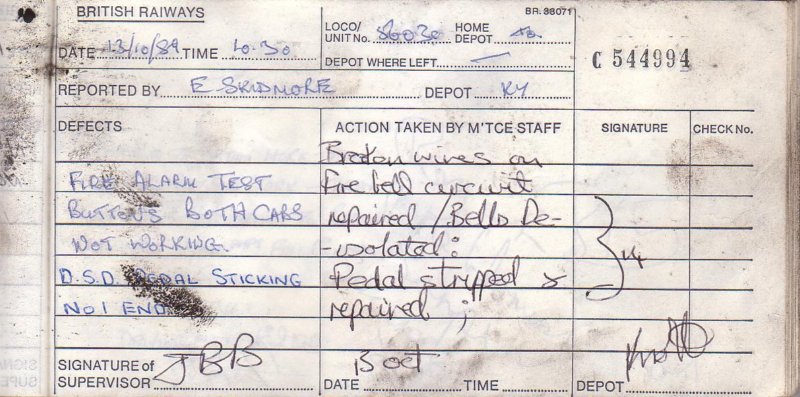 BRITISH RAIWAYS
BR. 33071
LOCO/ UNIT No. 56030 HOME DEPOT
DATE 13/10/89 TIME 10.30
DEPOT WHERE LEFT —
C 544994
REPORTED BY E SKIDMORE DEPOT KY
DEFECTS ACTION TAKEN BY M'TCE STAFF SIGNATURE CHECK No.
Broken wires on
FIRE ALARM TEST fire bell circuit
BUTTONS BOTH CABS repaired / Bells De-
NOT WORKING. -isolated:
D.S.D. PEDAL STICKING Pedal stripped &
NO 1 END repaired;
SIGNATURE of SUPERVISOR JBB
13 oct
DATE TIME DEPOT